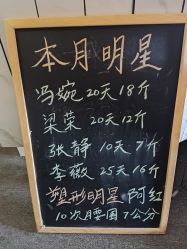 本月明星
冯婉20天18斤
梁荣20天12斤
张静10天7斤
李薇25天16斤
塑形明星阿红
10次腰围7公分